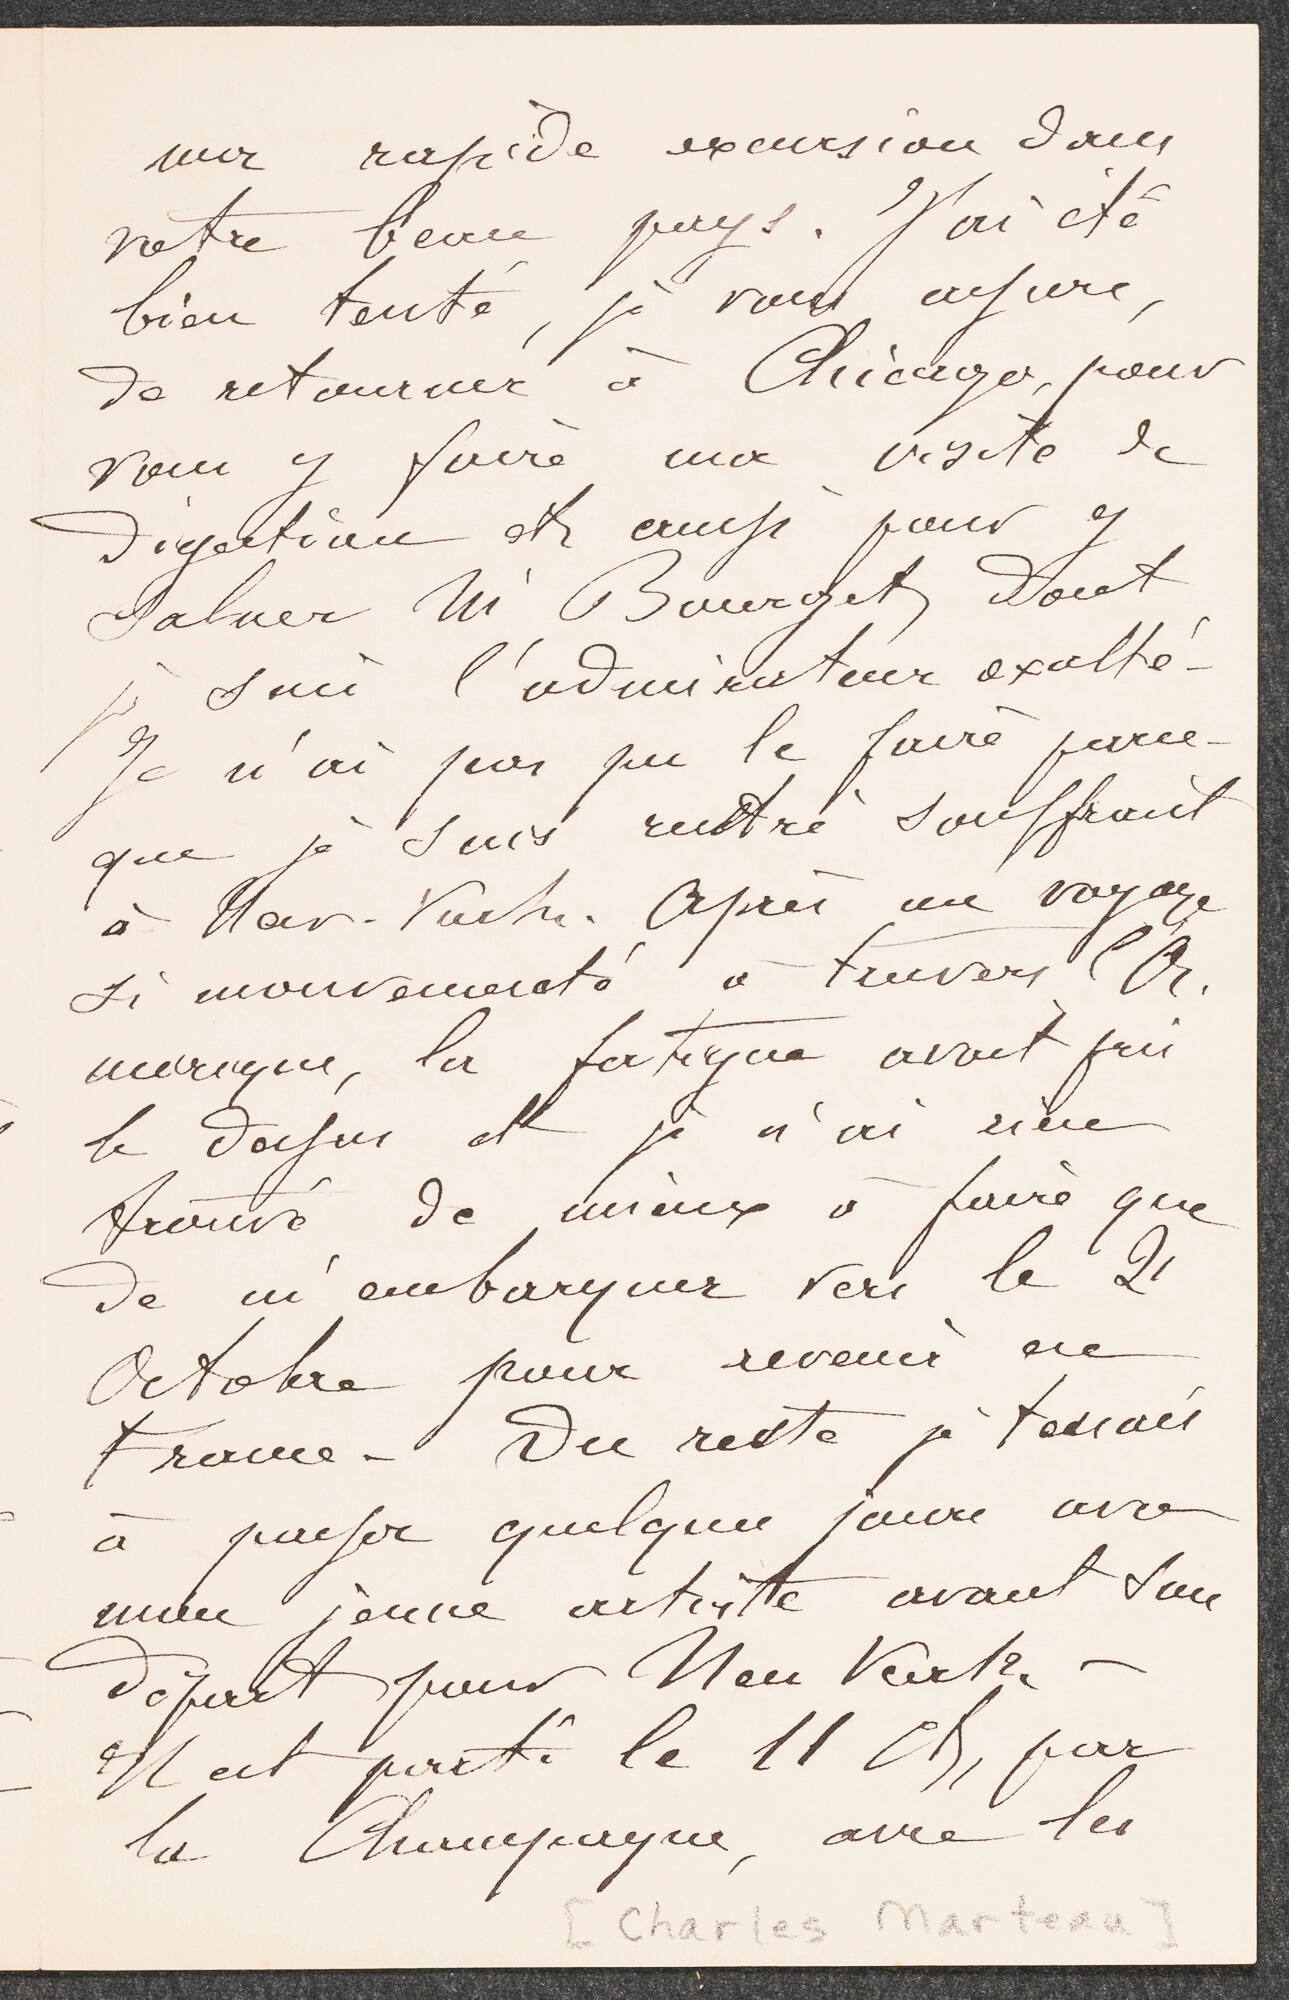 ma rapide excursion dans
votre beau pays. J'ai été
bien tenté, je vous assure,
de retourner à Chicago, pour
vous y faire ma visite de
digestion et aussi pour y
saluer Mr Bourget, dont
je suis l'admirateur exalté -
Je n'ai pas pu le faire parce-
que je suis rentré souffrant
à New-York. Après un voyage
si mouvementé à travers l'A.
merique, la fatigue avait pris
le dessus et je n'ai rien
trouvé de mieux à faire que
de m'embarquer vers le 21
Octobre pour revenir en
France - Du reste je tenais
à passer quelques jours avec
mon jeune artiste avant son
départ pour New York. -
Il est parti le 11 par
la Champagne, avec les
[Charles Marteau]